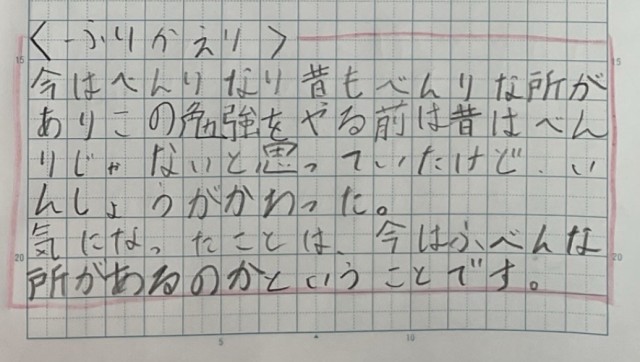 <ふりかえり>
今はべんりなり昔もべんりな所が
ありこの勉強をやる前は昔はべん
りじゃないと思っていたけど、い
んしょうがかわった。
気になったことは、今はふべんな
所があるのかということです。
15
15
20
20
5
10